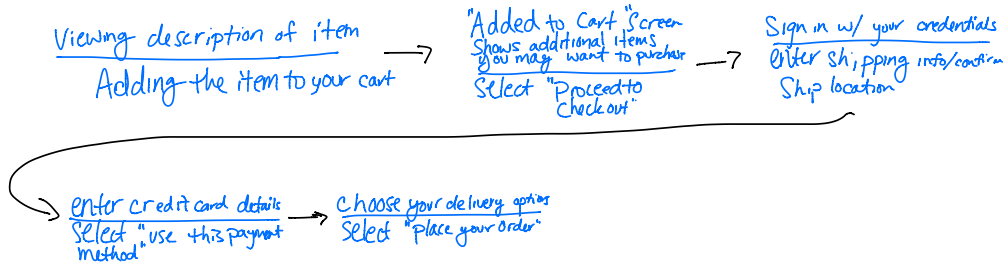 Viewing description of item
Adding the item to your cart
"Added to Cart" Screen
Shows additional items
you may want to purchase
Select "Proceed to
Checkout"
Sign in w/ your credentials
enter shipping info/confirm
Ship location
enter credit card details
Select "use this payment
method"
choose your delivery options
Select "Place your order"